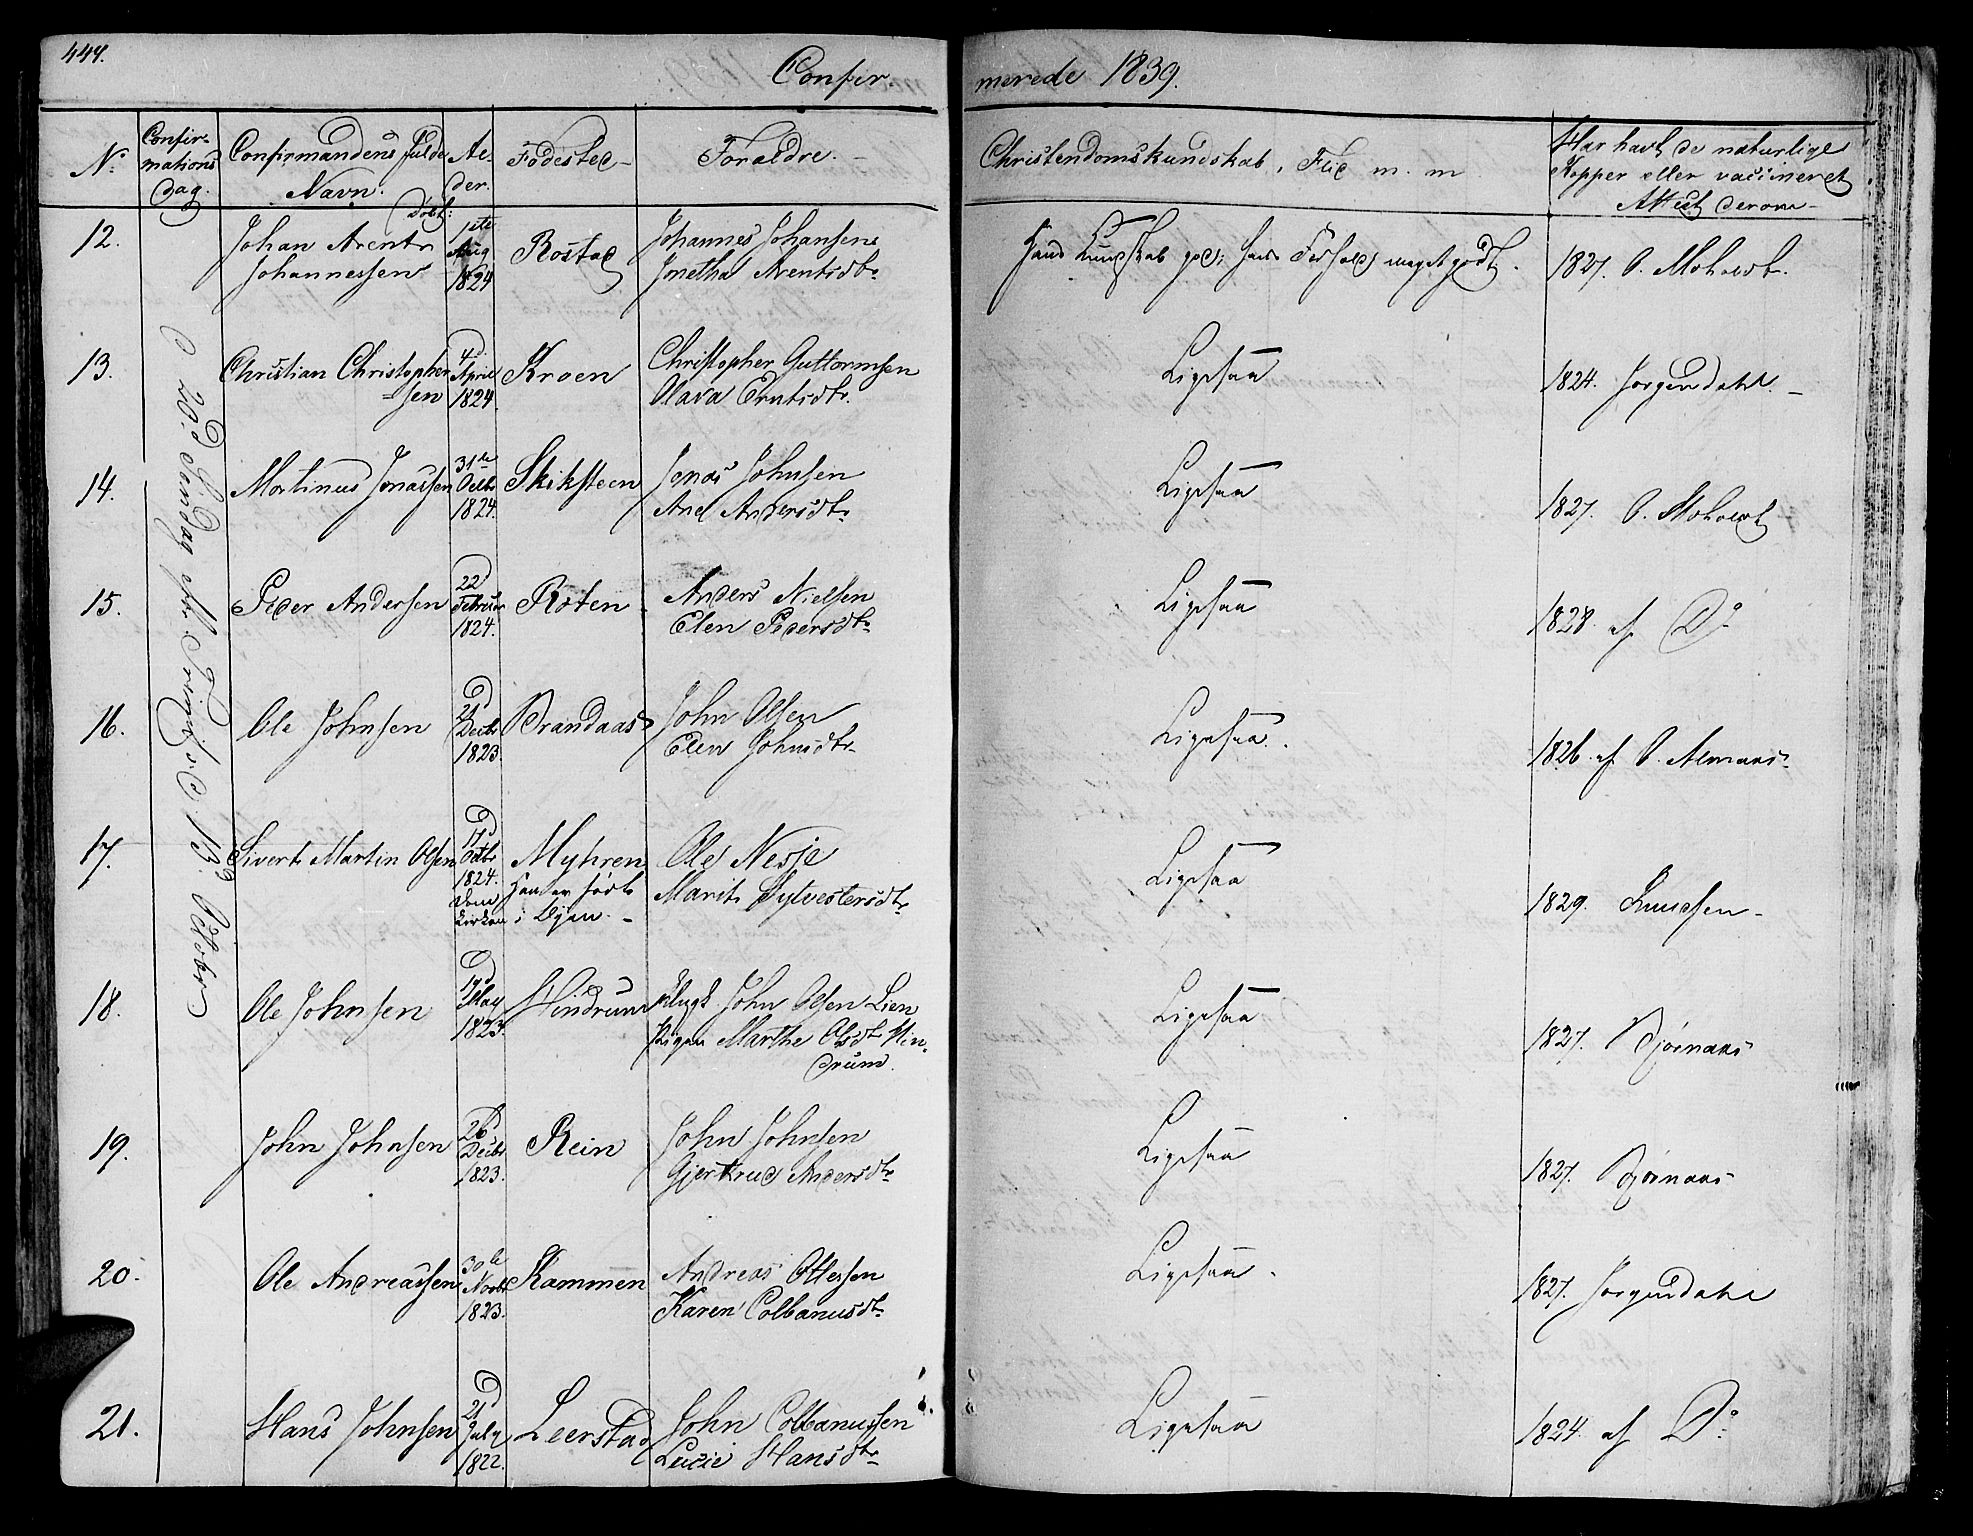 444.
Confir
merede 1839.
No
Confir-
mations
dag.
Confirmandens fulde
Navn.
Al-
der.
Fødested
Forældre.
Christendomskundskab, Flid m. m
Har havt de naturlige
Kopper eller vaccineret
Attest derom
D. 20. Søndag efter Trinit: d. 13. Octobr
12.
Johan Arentz
Johannessen
Døbt:
1ste
Aug
1824
Rostad
Johannes Johansen
Jonetha Arentsdtr
Hans Kundskab god; hans Forhold meget godt.
1827. O. Moholdt.
13.
Christian Christopher
=sen
d 4
April
1824.
Kroen
Christopher Guttormsen
Olava Erntsdtr.
Ligesaa
1824. Jorgendahl.
14.
Martinus Jonassen
31te
Octbr
1824.
Skiksteen
Jonas Johnsen
Ane Andersdtr
Ligesaa
1827. O. Moholdt
15.
Peder Andersen
d 22
Februar
1824.
Roten
Anders Nielsen
Elen Pedersdtr
Ligesaa
1828 af Do
16.
Ole Johnsen
d 21
Decbr
1823.
Brandaas
John Olsen
Elen Johnsdtr
Ligesaa.
1826. af O. Alemaas
17.
Sivert Martin Olsen
d 17
Octbr
1824.
Myhren
Han er født
i Ojen.
Ole Nesje
Marit Sylvestersdtr
Ligesaa
1829. Knudsen
18.
Ole Johnsen
d 19
May
1823.
Hindrum
Ungk. John Olsen Lien
Pigen Marthe Olsdtr Hin-
drum.
Ligesaa
1827. Bjørnaas
19.
John Johnsen
d 26
Decbr
1823.
Rein
John Johnsen
Gjertrud Andersdtr
Ligesaa
1827. Bjørnaas
20.
Ole Andreassen
30te
Novbr
1823.
Kammen
Andreas Ottesen
Karen Colbanusdtr
Ligesaa.
1827. Jorgendahl
21.
Hans Johnsen
d 21
July
1822.
Leerstad
John Colbanussen
Lucie Hansdtr
Ligesaa
1824. af Do